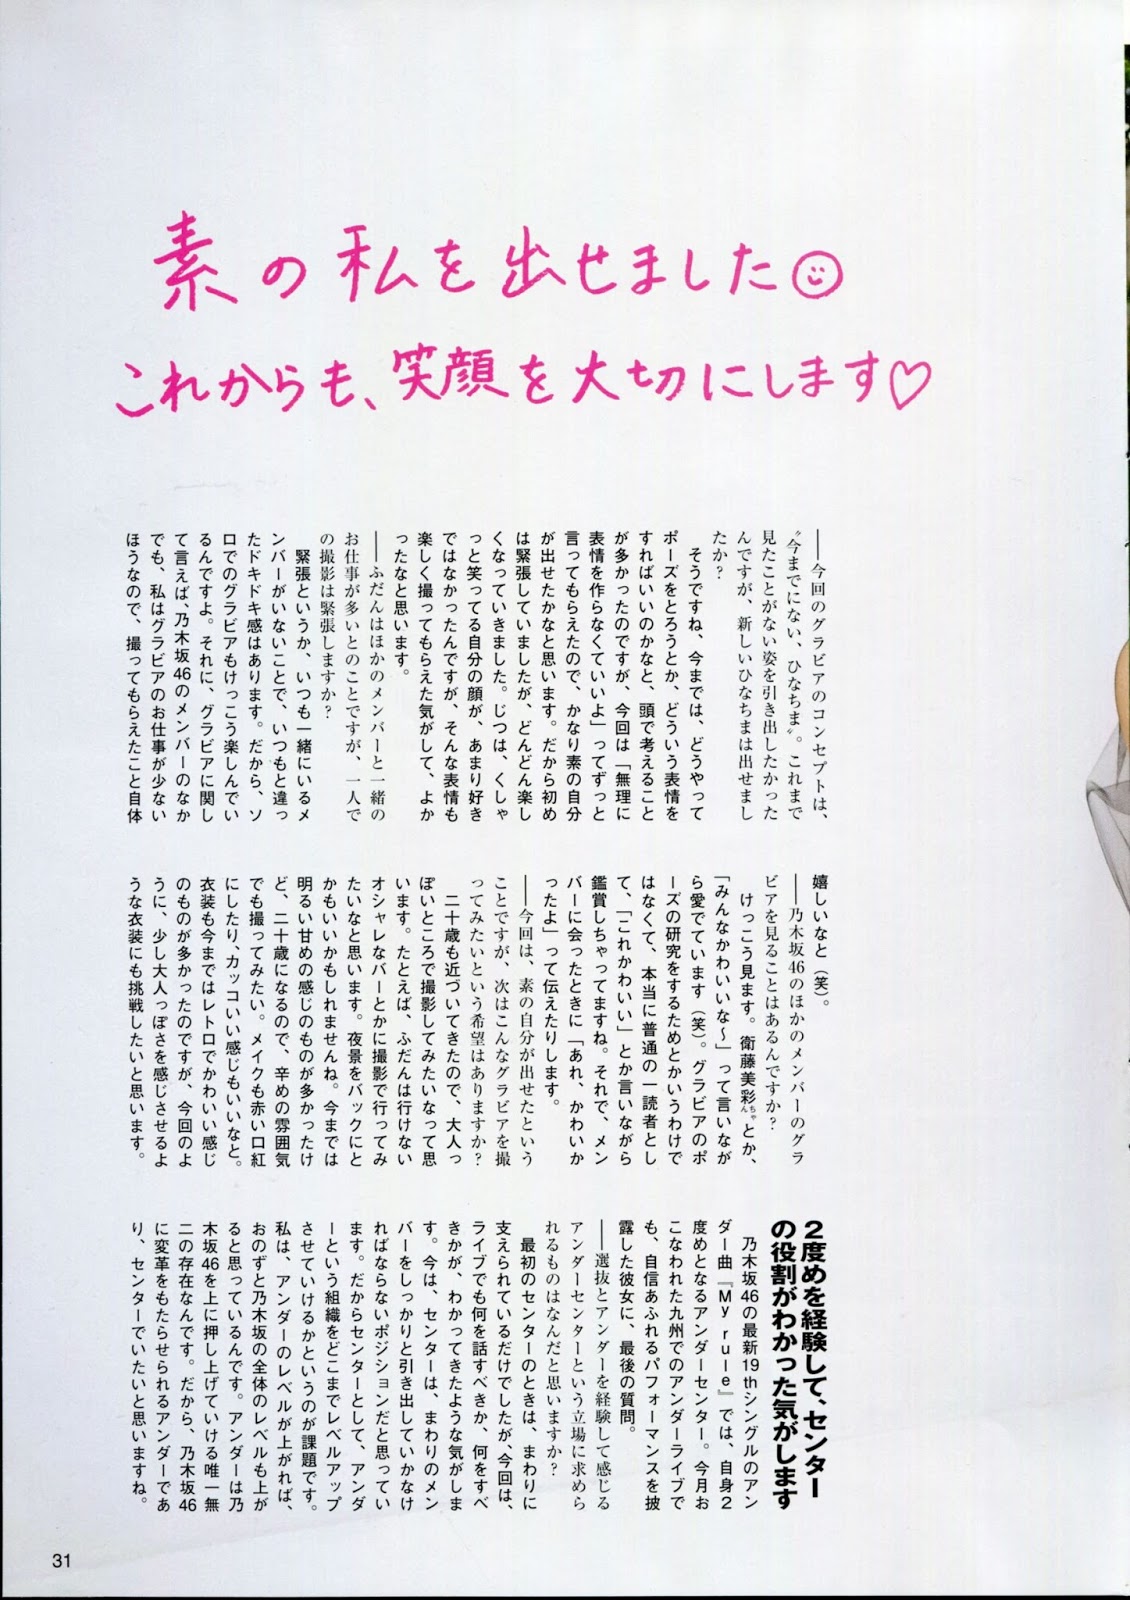 素の私を出せました
これからも、笑顔を大切にします♡
――今回のグラビアのコンセプトは、
〝今までにない、ひなちま〟。これまで
見たことがない姿を引き出したかった
んですが、新しいひなちまは出せまし
たか？
　そうですね、今までは、どうやって
ポーズをとろうとか、どういう表情を
すればいいのかなと、頭で考えること
が多かったのですが、今回は「無理に
表情を作らなくていいよ」ってずっと
言ってもらえたので、かなり素の自分
が出せたかなと思います。だから初め
は緊張していましたが、どんどん楽し
くなっていきました。じつは、くしゃ
っと笑ってる自分の顔が、あまり好き
ではなかったんですが、そんな表情も
楽しく撮ってもらえた気がして、よか
ったなと思います。
――ふだんはほかのメンバーと一緒の
お仕事が多いとのことですが、一人で
の撮影は緊張しますか？
　緊張というか、いつも一緒にいるメ
ンバーがいないことで、いつもと違っ
たドキドキ感はあります。だから、ソ
ロでのグラビアもけっこう楽しんでい
るんですよ。それに、グラビアに関し
て言えば、乃木坂46のメンバーのなか
でも、私はグラビアのお仕事が少ない
ほうなので、撮ってもらえたこと自体
嬉しいなと（笑）。
――乃木坂46のほかのメンバーのグラ
ビアを見ることはあるんですか？
　けっこう見ます。衛藤美彩ちゃんとか、
「みんなかわいいな～」って言いなが
ら愛でています（笑）。グラビアのポ
ーズの研究をするためとかいうわけで
はなくて、本当に普通の一読者とし
て、「これかわいい」とか言いながら
鑑賞しちゃってますね。それで、メン
バーに会ったときに「あれ、かわいか
ったよ」って伝えたりします。
――今回は、素の自分が出せたという
ことですが、次はこんなグラビアを撮
ってみたいという希望はありますか？
　二十歳も近づいてきたので、大人っ
ぽいところで撮影してみたいなって思
います。たとえば、ふだんは行けない
オシャレなバーとかに撮影で行ってみ
たいなと思います。夜景をバックにと
かもいいかもしれませんね。今までは
明るい甘めの感じのものが多かったけ
ど、二十歳になるので、辛めの雰囲気
でも撮ってみたい。メイクも赤い口紅
にしたり、カッコいい感じもいいなと。
衣装も今まではレトロでかわいい感じ
のものが多かったのですが、今回のよ
うに、少し大人っぽさを感じさせるよ
うな衣装にも挑戦したいと思います。
2度めを経験して、センター
の役割がわかった気がします
　乃木坂46の最新19thシングルのアン
ダー曲『My rule』では、自身2
度めとなるアンダーセンター。今月お
こなわれた九州でのアンダーライブで
も、自信あふれるパフォーマンスを披
露した彼女に、最後の質問。
――選抜とアンダーを経験して感じる
アンダーセンターという立場に求めら
れるものはなんだと思いますか？
　最初のセンターのときは、まわりに
支えられているだけでしたが、今回は、
ライブでも何を話すべきか、何をすべ
きかが、わかってきたような気がしま
す。今は、センターは、まわりのメン
バーをしっかりと引き出していかなけ
ればならないポジションだと思ってい
ます。だからセンターとして、アンダ
ーという組織をどこまでレベルアップ
させていけるかというのが課題です。
私は、アンダーのレベルが上がれば、
おのずと乃木坂の全体のレベルも上が
ると思っているんです。アンダーは乃
木坂46を上に押し上げていける唯一無
二の存在なんです。だから、乃木坂46
に変革をもたらせられるアンダーであ
り、センターでいたいと思いますね。
31